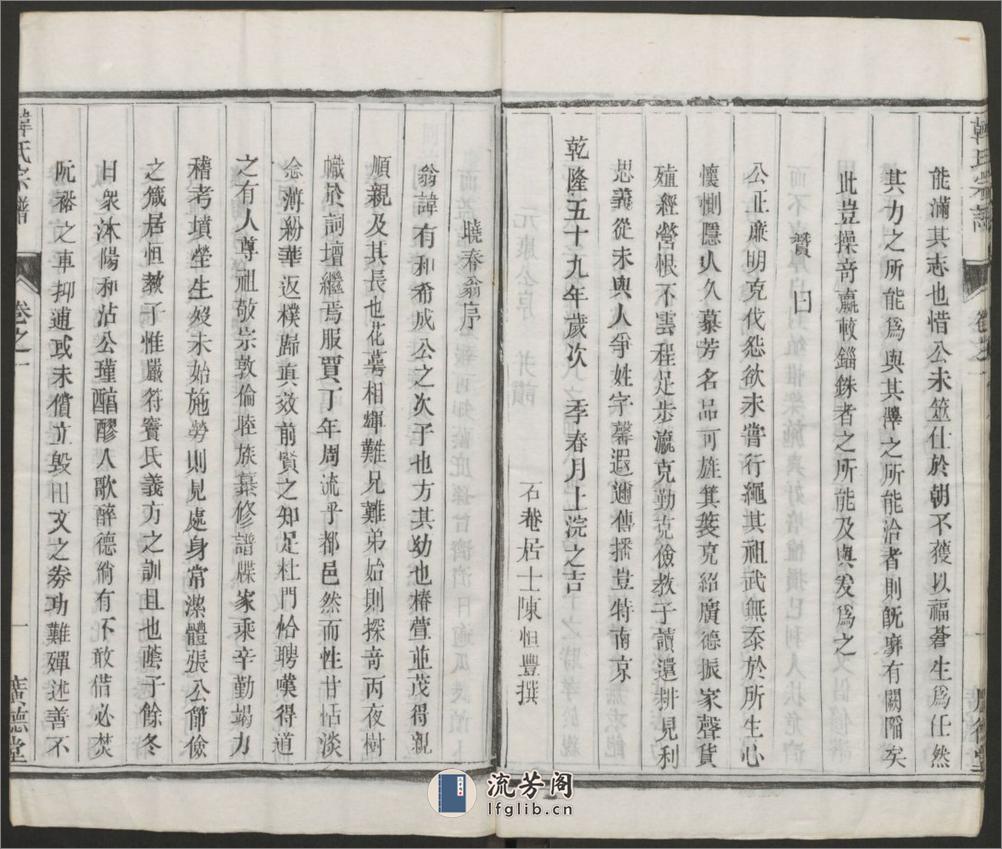 能滿其志也惜公未筮仕於朝不獲以福蒼生爲任然
其力之所能爲與其澤之所能洽者則旣靡有闕陷矣
此豈操竒贏較錙銖者之所能及與爰爲之
贊曰
公正廉明克伐怨欲未嘗行繩其祖武無忝於所生心
懷惻隱人久慕芳名品可旌箕裘克紹廣德振家聲貨
殖經營恨不雲程足步瀛克勤克儉教子讀還耕見利
思義從未與人爭姓字馨遐邇傳播豈特南京
乾隆五十九年歲次 季春月上浣之吉
石菴居士陳恒豐撰
韓氏宗譜
卷之一
曉春翁序
翁諱有和希成公之次子也方其幼也椿萱並茂得親
順親及其長也花萼相輝難兄難弟始則探竒丙夜樹
幟於詞壇繼焉服賈丁年周流乎都邑然而性甘恬淡
念薄紛華返樸歸眞效前賢之知足杜門恰聘嘆得道
之有人尊祖敬宗敦倫睦族纂修譜牒家乘辛勤竭力
稽考墳塋生歿未始施勞則見處身常潔體張公節儉
之箴居恒教子惟嚴符竇氏義方之訓且也蔭子餘冬
日衆沐陽和沾公瑾醇醪人歌醉德倘有不敢借必焚
阮裕之車抑逋或未償立毀田文之劵功難殫述善不
韓氏宗譜
卷之一
一
廣德堂
流芳阁
lfglib.cn